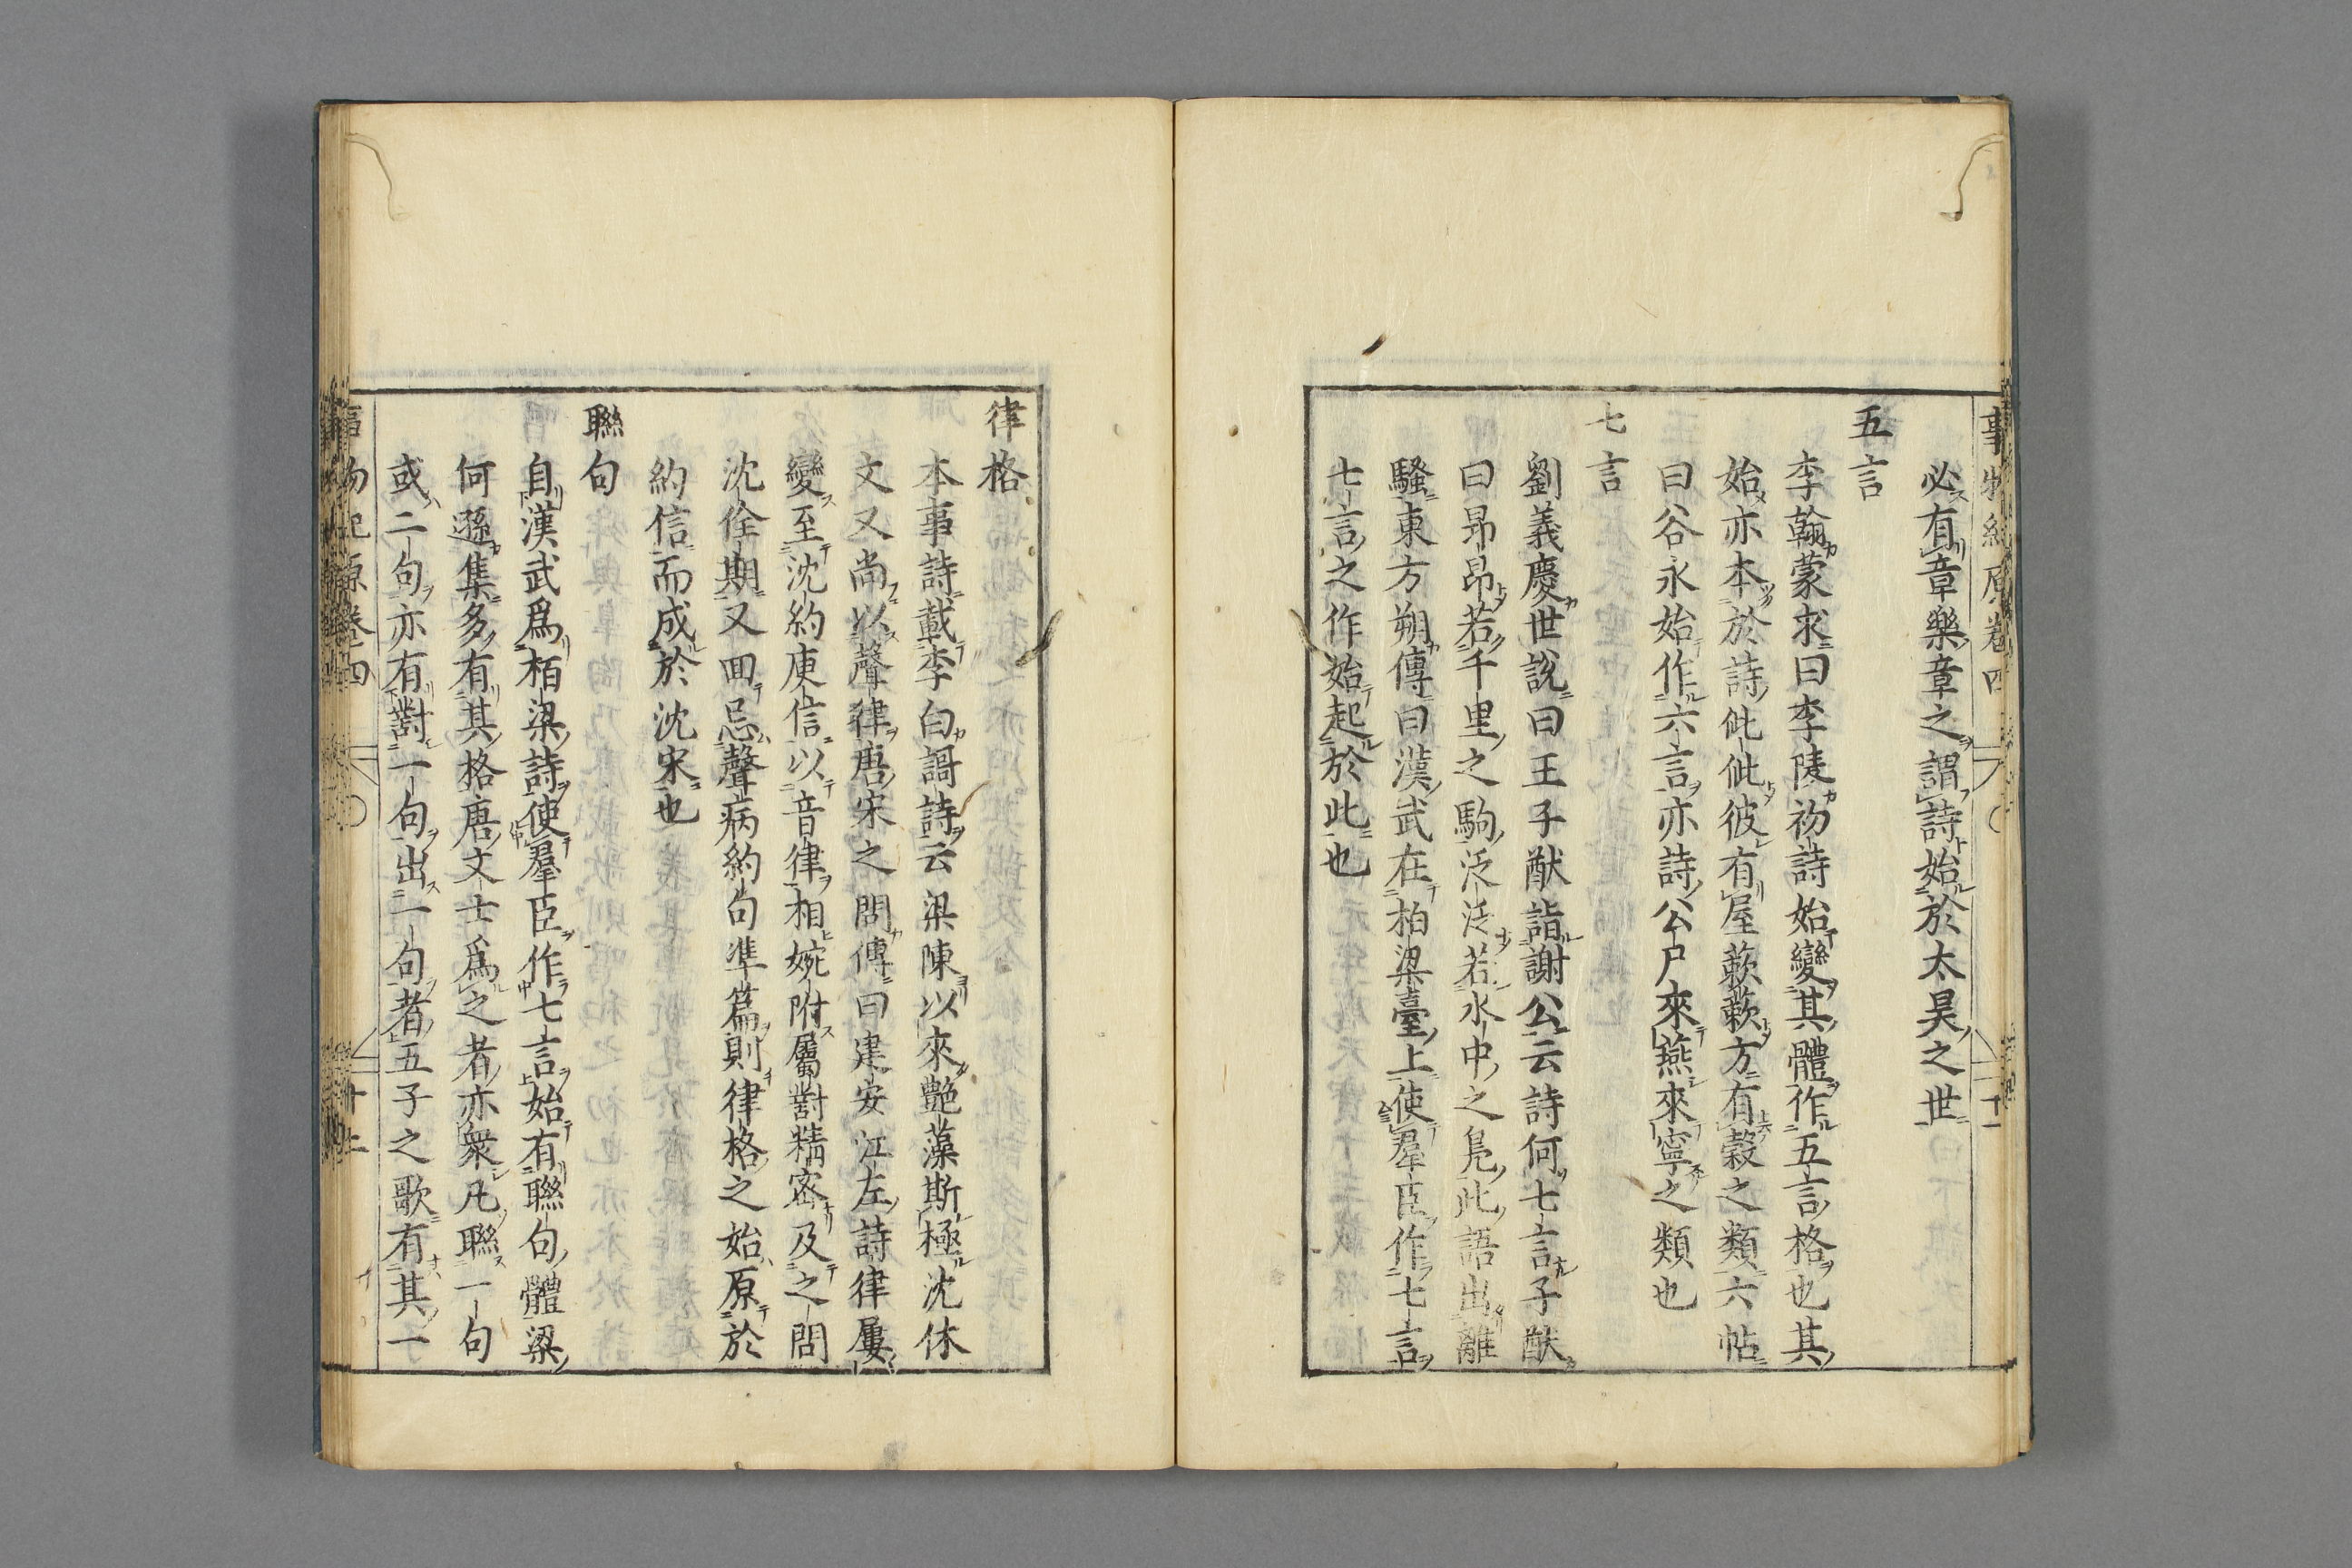 必有章樂章之謂詩始於太昊之世
五言
李翰蒙求曰李陵初詩始變其體作五言格也其
始亦本於詩佌佌彼有屋蔌蔌方有穀之類六帖
曰谷永始作六言亦詩公尸來燕來寧之類也
七言
劉義慶世說曰王子猷詣謝公云詩何七言子猷
曰昻昻若千里之駒泛泛若水中之鳧此語出離
騷東方朔傳曰漢武在柏梁臺上使羣臣作七言
七言之作始起於此也
律格
本事詩載李白謌詩云梁陳以來艶藻斯極沈休
文又尚以聲律唐宋之問傳曰建安江左詩律屢
變至沈約庾信以音律相婉附屬對精密及之問
沈佺期又回忌聲病約句準篇則律格之始原於
約信而成於沈宋也
聯句
自漢武爲栢梁詩使羣臣作七言始有聯句體梁
何遜集多有其格唐文士爲之者亦衆凡聯一句
或二句亦有對一句出一句者五子之歌有其一
事物紀原卷四